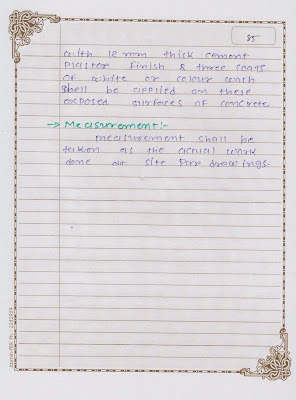 85
with 12 mm thick cement
Plastor finish & three coats
of white or colour wash
shell be applied on these
exposed surfaces of concrete
→ Measurement:-
measurement shall be
taken as the actual work
done on site Par drawings.